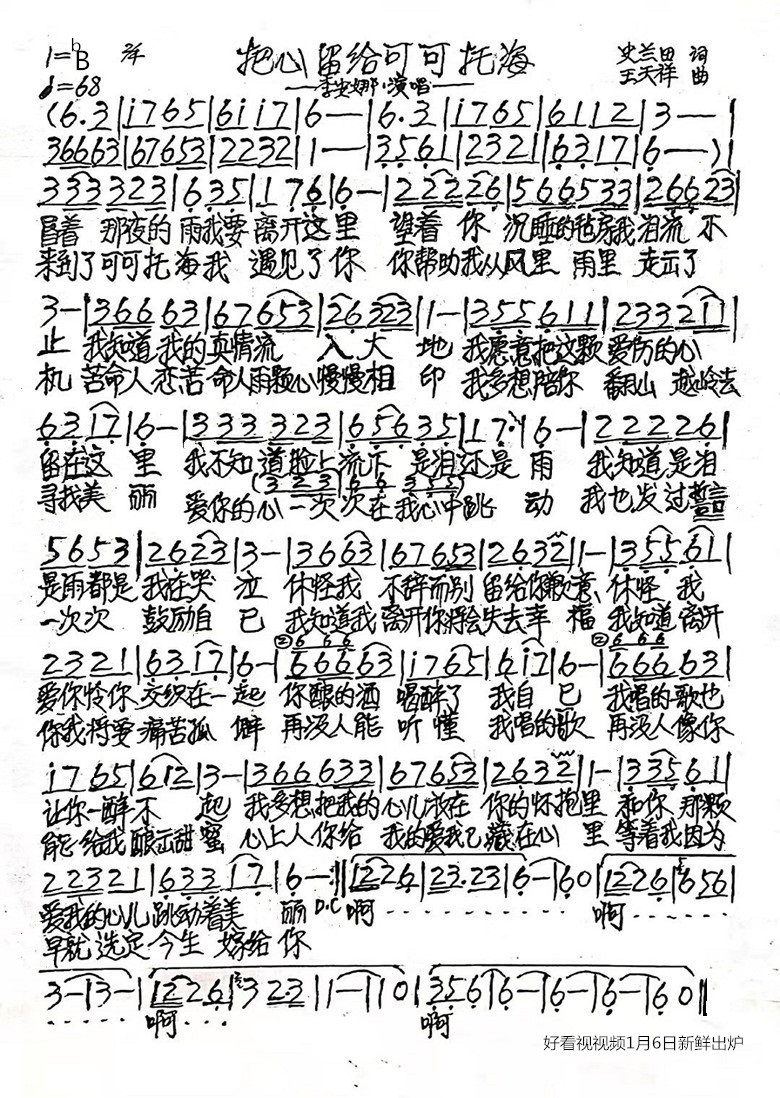 1=♭B 2/4 把心留给可可托海 史兰田 词
♩=68 ——李安娜·演唱—— 王天祥 曲
(6·3|i765|6i17|6—|6·3|i765|6112|3——|
36663|67653|2232|1——|3561|2321|6317|6——)|
333323|635|176|6—|22226|566533|26623|
冒着 那夜的 雨我要 离开这里 望着 你 沉睡的毡房我泪流 不
来到了可可托海我 遇见了你 你帮助我从风里 雨里 走出了
3—|36663|67653|26323|1—|355611|233211|
止 我知道 我的真情流 入 大 地 我愿意把这颗 爱伤的心
机 苦命人恋苦命人雨颗心慢慢相 印 我多想陪你 翻山 越岭去
6317|6—|333323|65635|17·|6—|222226|
留在这 里 我不知 道脸上 流下 是泪还是 雨 我知道 是泪
(323|66 355)
寻找美 丽 爱你的心一次次在我心中跳 动 我也发过誓言
5653|2623|3—|3663|67653|2632|1—|35561|
是雨都是 我在哭 泣 休怪我 不辞而别 留给你歉意 休怪 我
一次次 鼓励自 己 我知道我 离开你将会失去幸 福 我知道 离开
② 6 6 6 ② 6 6 6
2321|6317|6—|66663|1765|617|6—|66663|
爱你怜你 交织在一起 你酿的酒 喝醉了 我自 己 我唱的歌也
你我将受 痛苦孤 僻 再没人能 听 懂 我唱的歌 再没人像你
i765|612|3—|366633|67653|2632|1—|33561|
让你一醉不 起 我多想把我的 心儿放在 你的怀抱里 和你 那颗
能给我酿出甜蜜 心上人你给 我的爱我已藏在心 里 等着我因为
22321|63317|6—:‖1226|23·23|6—|60|1226|656|
爱我的心儿跳动着美 丽 D.C 啊 - - - - - - - - - 啊 - - - - - -
早就 选定 今生 嫁给 你
3—|3—|1226|323|1—|10|356|6—|6—|6—|60‖
- - - - - 啊 - - - 啊
好看视视频1月6日新鲜出炉